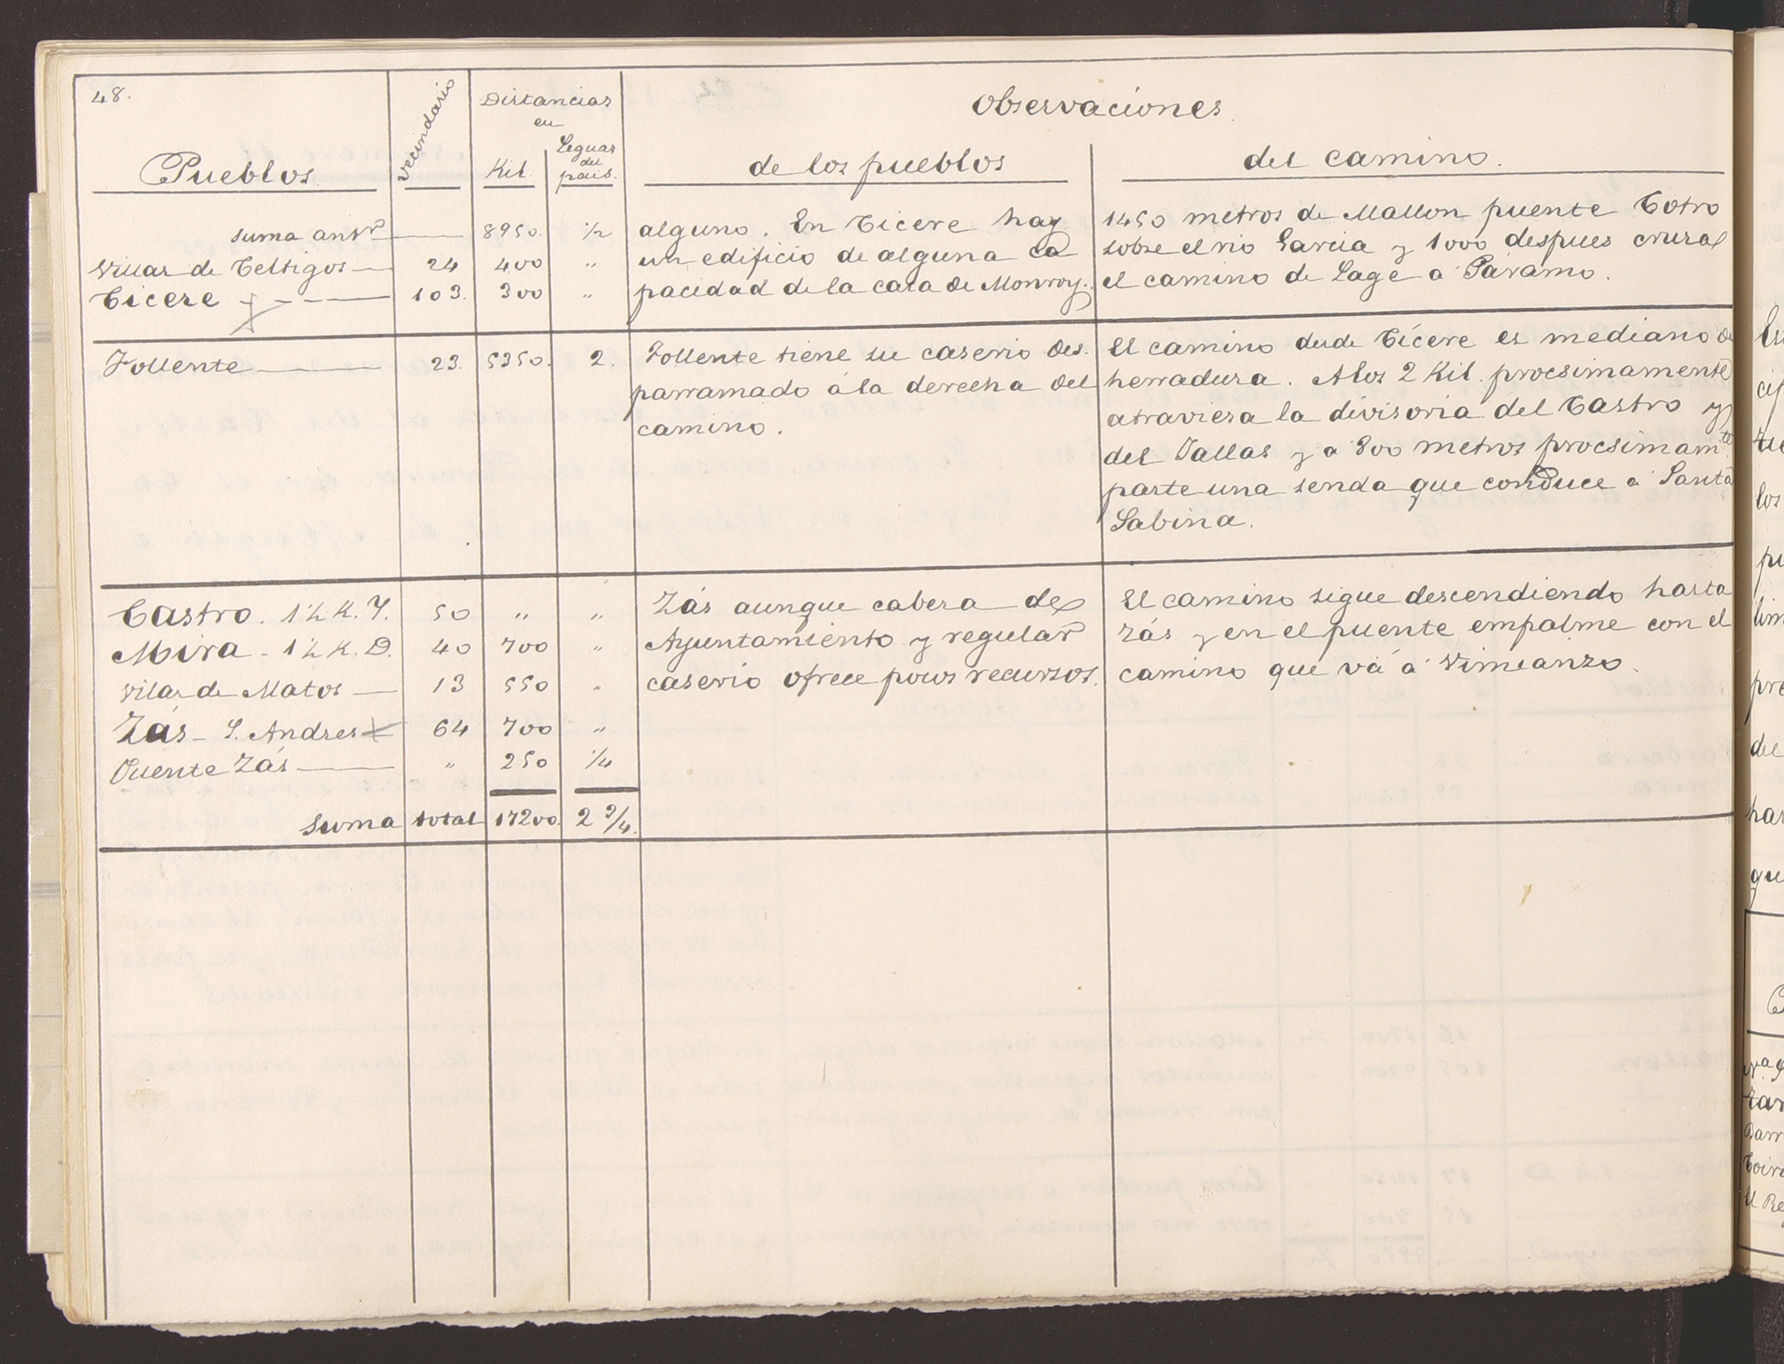 48.
Pueblos
vecindario
Distancias
en
Kil.
Leguas
del
pais.
Observaciones
de los pueblos
del camino.
suma antr. 8950. ½
Villar de Celtigos 24 400 "
Cicere 103. 300 "
alguno. En Cicere hay
un edificio de alguna ca
pacidad de la casa de Monroy.
1450 metros de Mallon puente Cotro
sobre el rio Garcia y 1000 despues cruza
el camino de Lage a Páramo.
Follente 23. 5350. 2.
Follente tiene su caserio des-
parramado á la derecha del
camino.
El camino desde Cícere es mediano de
herradura. A los 2 Kil. procsimamente
atraviesa la divisoria del Castro y
del Vallas y a 800 metros procsimamte
parte una senda que conduce á Santa
Sabina.
Castro. 1½ K. Y. 50 " "
Mira - 1½ K. D. 40 700 "
Vilar de Matos 13 550 "
Zás - S. Andres 64 700 "
Puente Zás " 250 ¼
Suma total 17200. 2 3/4.
Zás aunque cabesa de
Ayuntamiento y regular
caserio ofrece pocos recursos.
El camino sigue descendiendo hasta
Zás y en el puente empalme con el
camino que vá á Vimianzo.